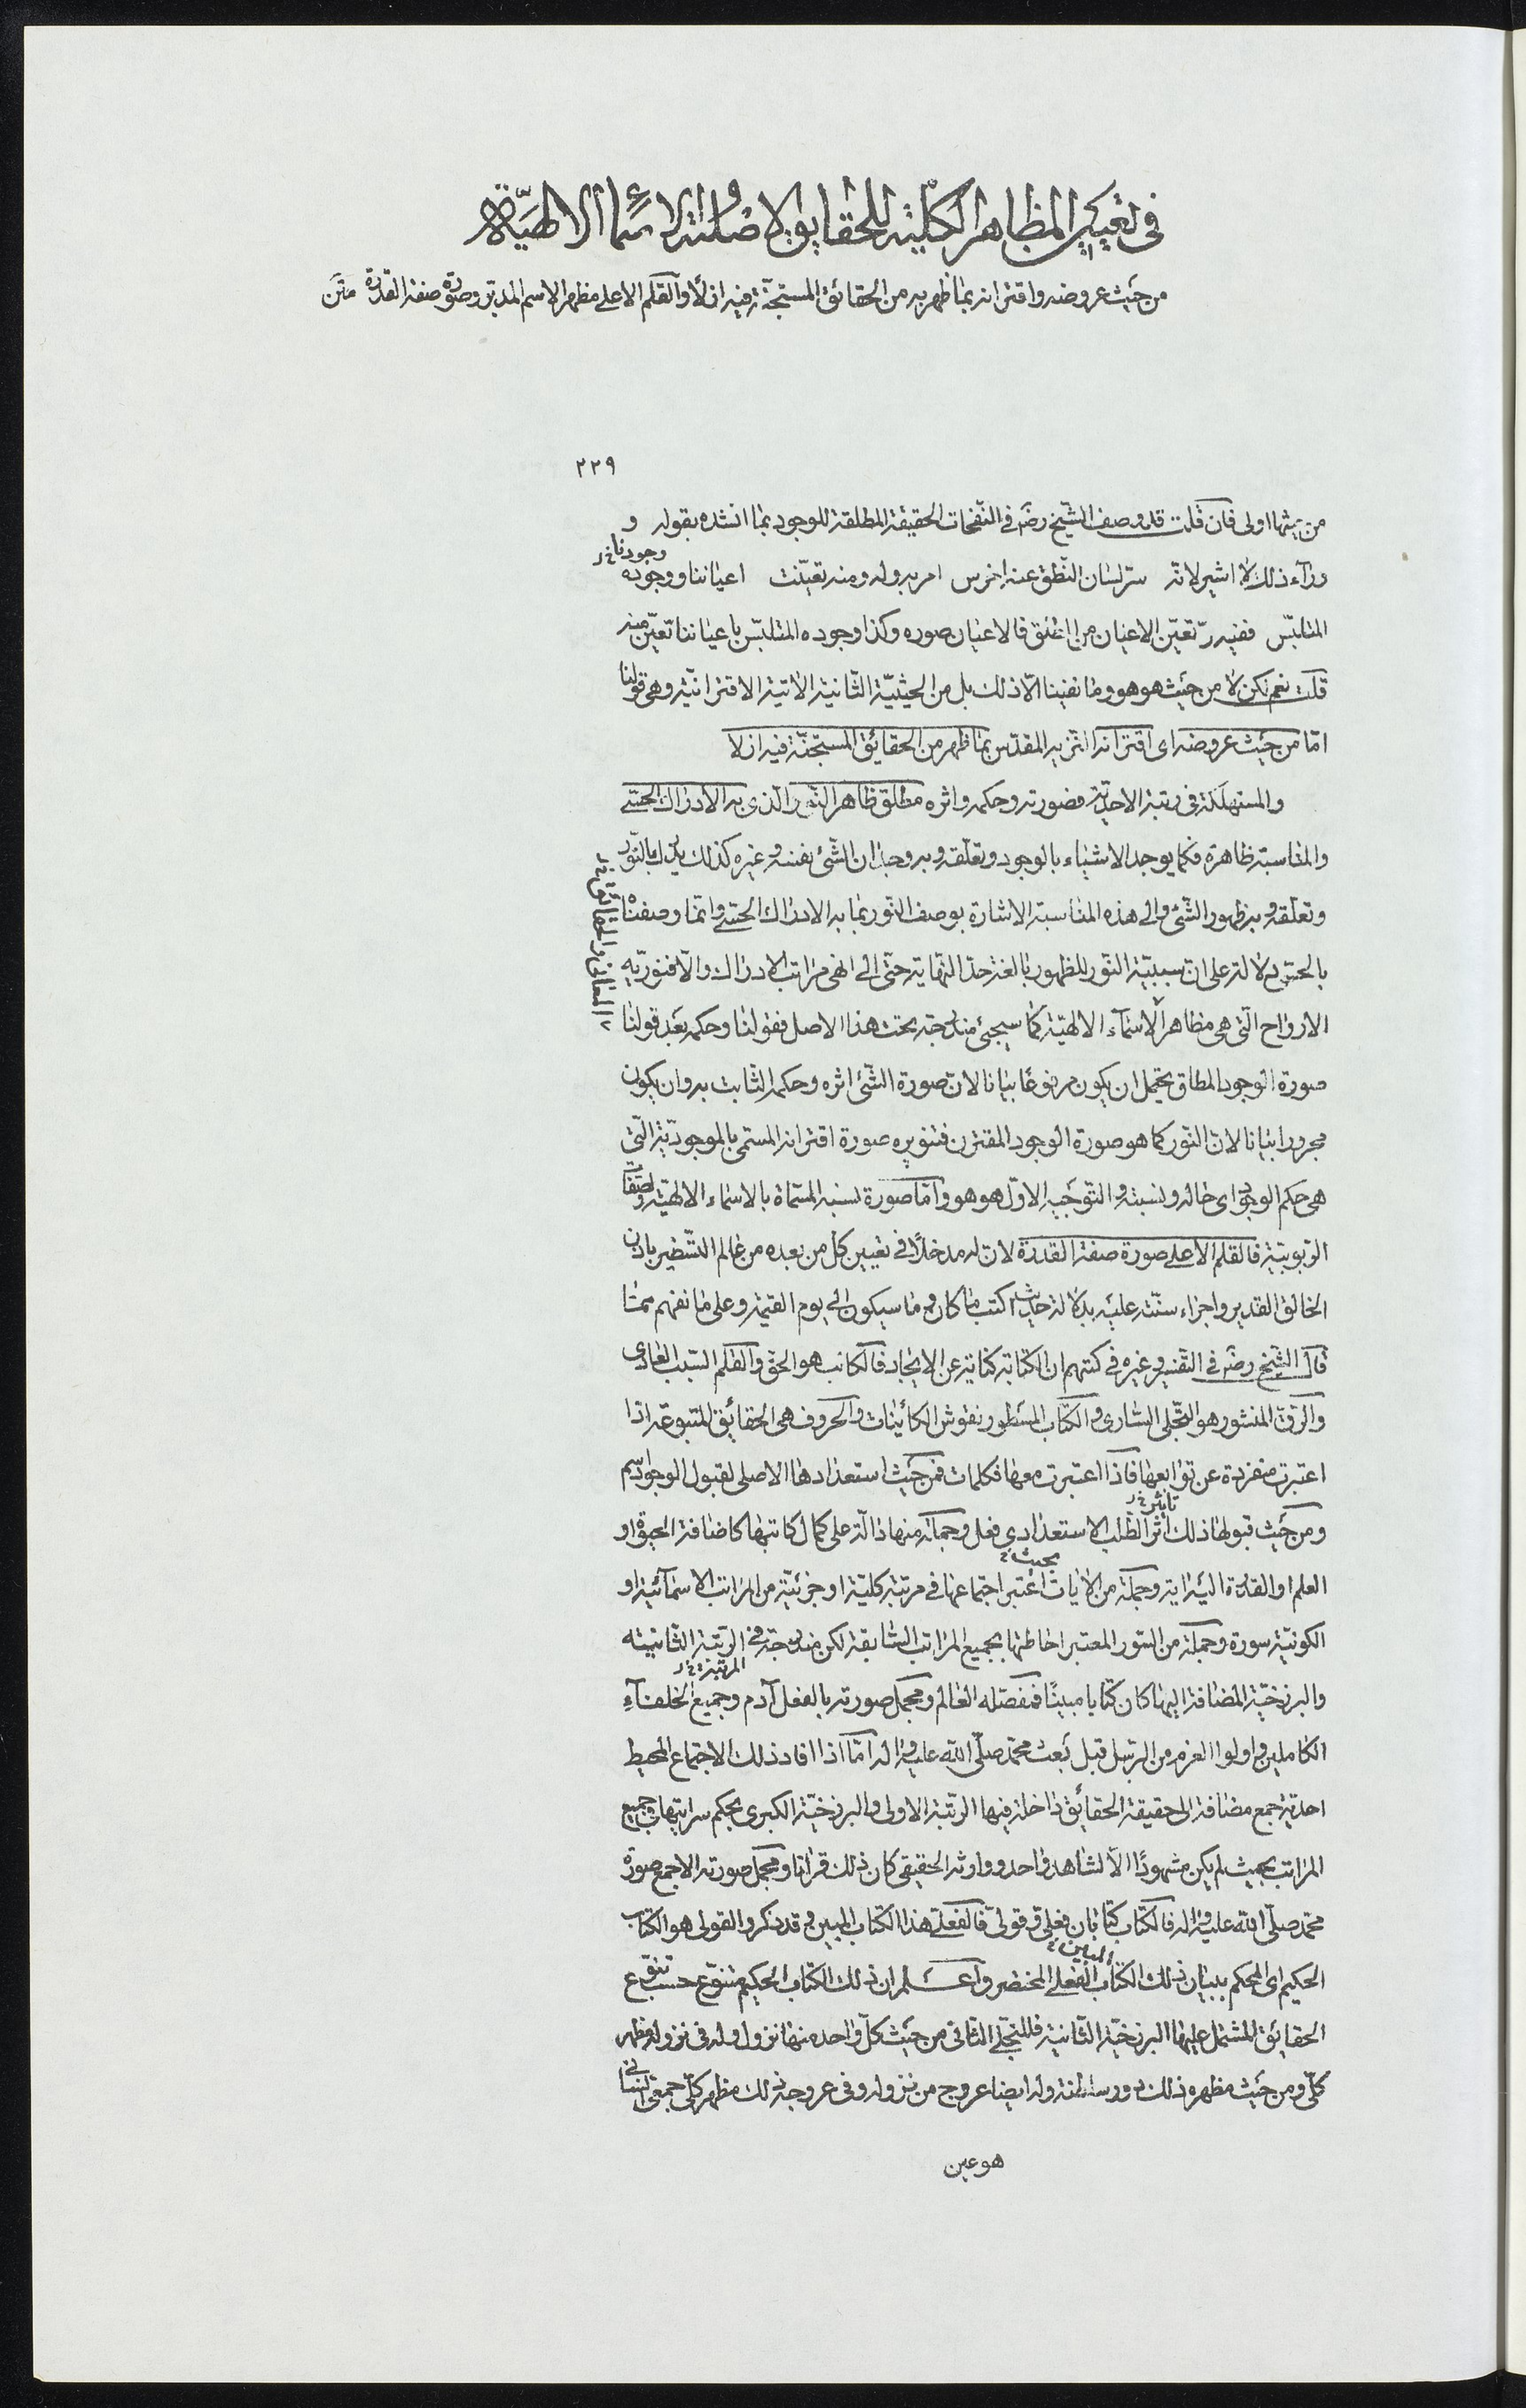 في تعيين المظاهر الكلية للحقايق الاصلية والاسماء الالهية
من حيث عروضه واقترانه بما ظهر به من الحقائق المستجنّة فيه ازلًا والقلم الاعلى مظهر الاسم المدبّر وصورة صفة القدرة متن
٢٢٩
من حيثها اولى فان قلت قد وصف الشيخ رضّه في النفحات الحقيقة المطلقة للوجود بما انشده بقوله و
ورآء ذلك لا اشير لانّه سرّ لسان النّطق عنه اخرس امر به وله ومنه تعيّنت اعياننا ووجوده
وجودنا خ ر
المتلبّس ففيه تعيّن الاعيان من المطلق فالاعيان صوره وكذا وجوده المتلبّس باعياننا تعيّن منه
قلت نعم لكن لا من حيث هو هو وما نفينا الّا ذلك بل من الحيثيّة الثّانية الآتية الاقترانيّة وهى قولنا
امّا من حيث عروضه اى اقترانه النزيه المقدّس بما ظهر من الحقائق المستجنّة فيه ازلا
والمستهلكة في رتبة الاحديّة فصورته وحكمه واثره مطلق ظاهر النّور الذى به الادراك الحسّى
والمناسبة ظاهرة فكما يوجد الاشياء بالوجود وتعلّقه وبه وجدان الشّئ نفسه وغيره كذلك يدرك بالنّور
وتعلّقه وبه ظهور الشّئ والى هذه المناسبة الاشارة بوصف النّور بما به الادراك الحسّى وانّما وصفناه
بالحسّى دلالة على انّ سببيّة النّور للظهور بالغة حدّ النّهاية حتّى الى انهى مراتب الادراك والّا فنوريّة
الارواح الّتى هى مظاهر الاسمآء الالهيّة كما سيجئ مندرجة تحت هذا الاصل فقولنا وحكمه بعد قولنا
صورة الوجود المطلق يحتمل ان يكون مرفوعًا بيانا لانّ صورة الشّئ اثره وحكمه الثّابت به وان يكون
مجرورا بيانا لانّ النّور كما هو صورة الوجود المقترن فتنويره صورة اقترانه المسمّى بالموجوديّة الّتى
هى حكم الوجود اى حاله ونسبته والتّوجيه الاوّل هو هو وامّا صورة نسبه المسمّاة بالاسماء الالهيّة وصفات
الرّبوبيّة فالقلم الاعلى صورة صفة القدرة لانّ له مدخلًا في تعيين كلّ من بعده من عالم التسطير باذن
الخالق القدير واجراء سنّته عليه بدلالة حديث اكتب ما كان وما سيكون الى يوم القيمة وعلى ما نفهم ممّا
قال الشّيخ رضّه في التفسير وغيره في كتبهم ان الكتابة كناية عن الايجاد فالكاتب هو الحقّ والقلم السّبب العادى
والرّقّ المنشور هو التّجلى السّارى والكتاب المسطور نقوش الكائنات والحروف هى الحقائق المتبوعة اذا
اعتبرت منفردة عن توابعها فاذا اعتبرت معها فكلمات فمن حيث استعدادها الاصلى لقبول الوجود اسم
ومن حيث قبولها ذلك اثر الطّلب الاستعدادى فعل وجملة منها دالّة على كمال كاتبها كاضافة الحيوة او
تاثير خ ر
العلم او القدرة اليه اية وجملة من الايات اعتبر اجتماعها في مرتبة كليّة او جزئيّة من المراتب الاسمائيّة او
بحيث خ
الكونيّة سورة وجملة من السّور المعتبر احاطتها بجميع المراتب السّابقة لكن مندرجة في الرّتبة الثّانية
المرتبة خ ر
والبرزخيّة المضافة اليها كان كتابا مبينًا فمفصّله العالم ومجمل صورته بالفعل آدم وجميع الخلفآء
الكاملين واولوا العزم من الرّسل قبل بعث محمّد صلّى اللّه عليه واله امّا اذا افاد ذلك الاجتماع المحيط
احديّة جمع مضافة الى حقيقة الحقائق داخلة فيها الرّتبة الاولى والبرزخيّة الكبرى بحكم سرايتها في جميع
المراتب بحيث لم يكن مشهودًا الّا لشاهد واحد ووارثه الحقيقى كان ذلك قرانا ومجمل صورته الاجمع صورة
محمّد صلّى اللّه عليه واله فالكتاب كتابان فعلى وقولىّ فالفعلى هذا الكتاب المبين وقد ذكر والقولى هو الكتاب
الحكيم اى المحكم ببيان ذلك الكتاب الفعلى المختصر واعلم ان ذلك الكتاب الحكيم متنوّع حسب تنوّع
المبين خ
الحقائق المشتمل عليها البرزخيّة الثّانية فللتجلّى الثّانى من حيث كلّ واحدة منها نزول وله في نزوله مظهر
كلّى ومن حيث مظهره ذلك دور سلطنة وله ايضا عروج من نزوله وفى عروجه ذلك مظهر كلّى جمعى انسانى
هو عين